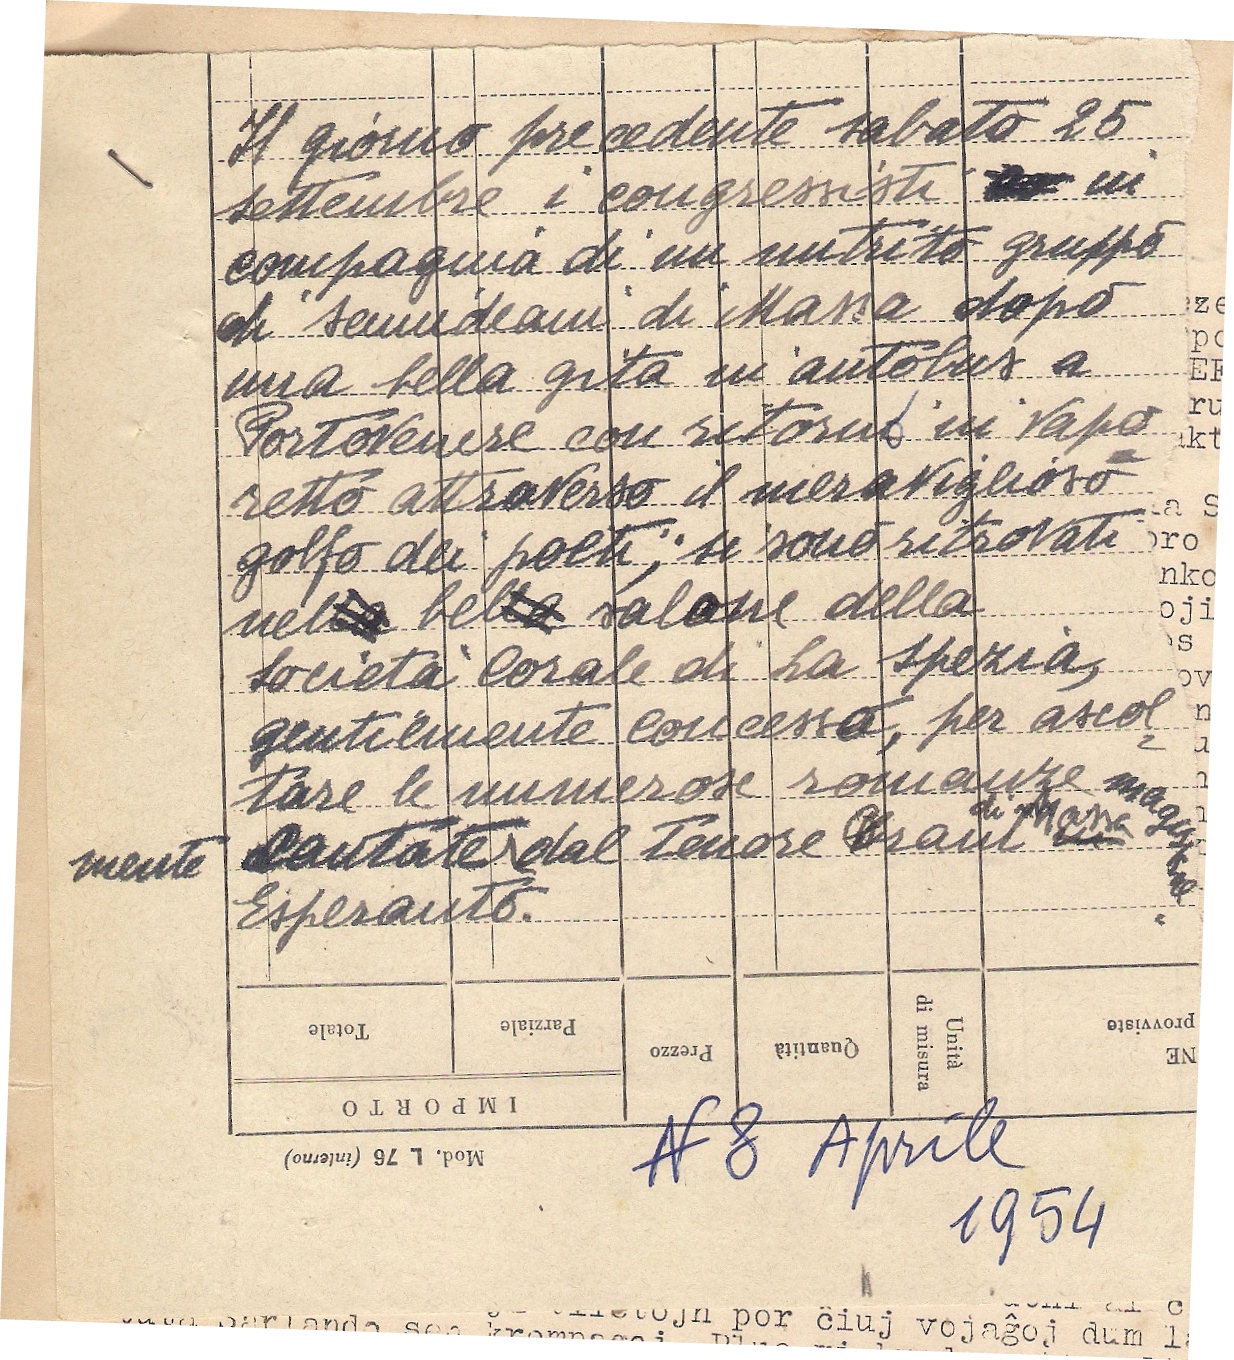 Il giorno precedente sabato 25
settembre i congressisti in
compagnia di un nutrito gruppo
di samideani di Massa dopo
una bella gita in autobus a
Portovenere con ritorno in vapo
retto attraverso il meraviglioso
golfo dei poeti, si sono ritrovati
nel bel salone della
società Corale di La Spezia,
gentilmente concesso, per ascol
tare le numerose romanze magistral
mente Cantate dal Tenore di Massa
Esperanto.
Totale
Parziale
Prezzo
Quantità
Unità
di misura
provviste
NE
IMPORTO
Mod. L 76 (interno)
N 8 Aprile
1954
por ĉiuj vojaĝoj dum la